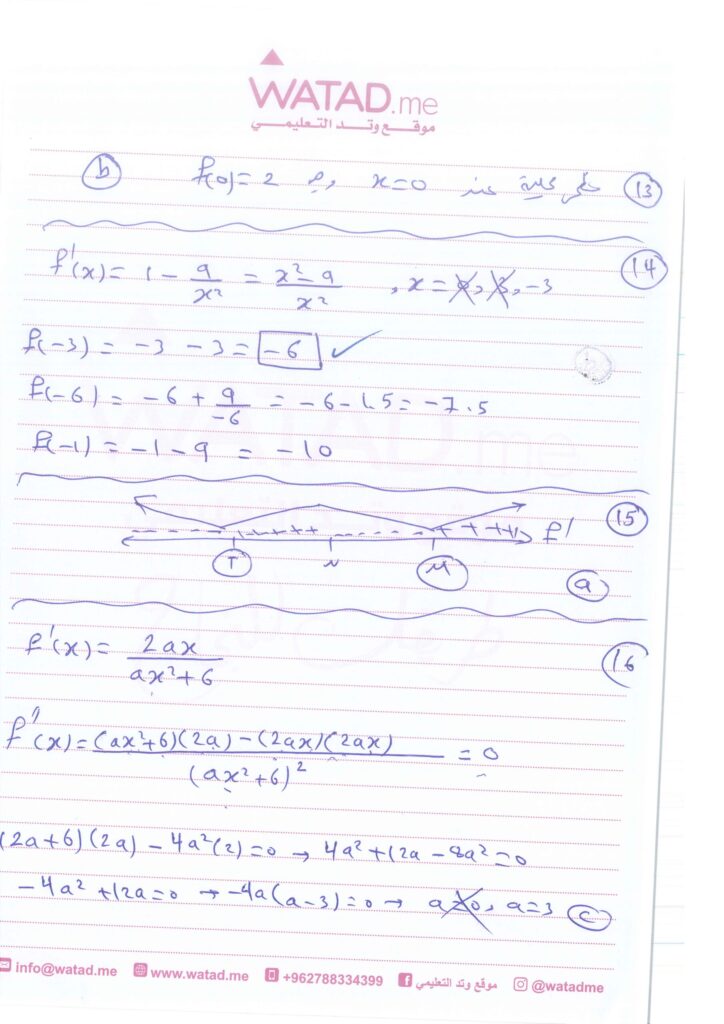 WATAD.me
موقع وتد التعليمي
13 عند x=0 f(0)=2 b
14 f'(x) = 1 - 9/x² = (x² - 9)/x² , x = 0, 3, -3
f(-3) = -3 - 3 = -6 ✓
f(-6) = -6 + 9/-6 = -6 - 1.5 = -7.5
f(-1) = -1 - 9 = -10
15
- - - - + + + + + - - - - - - + + + + f'
T N M
a
16 f'(x) = 2ax/(ax²+6)
f''(x) = ((ax²+6)(2a) - (2ax)(2ax))/(ax²+6)² = 0
(2a+6)(2a) - 4a²(2) = 0 → 4a² + 12a - 8a² = 0
-4a² + 12a = 0 → -4a(a-3) = 0 → a=0, a=3 c
info@watad.me www.watad.me +962788334399 موقع وتد التعليمي @watadme